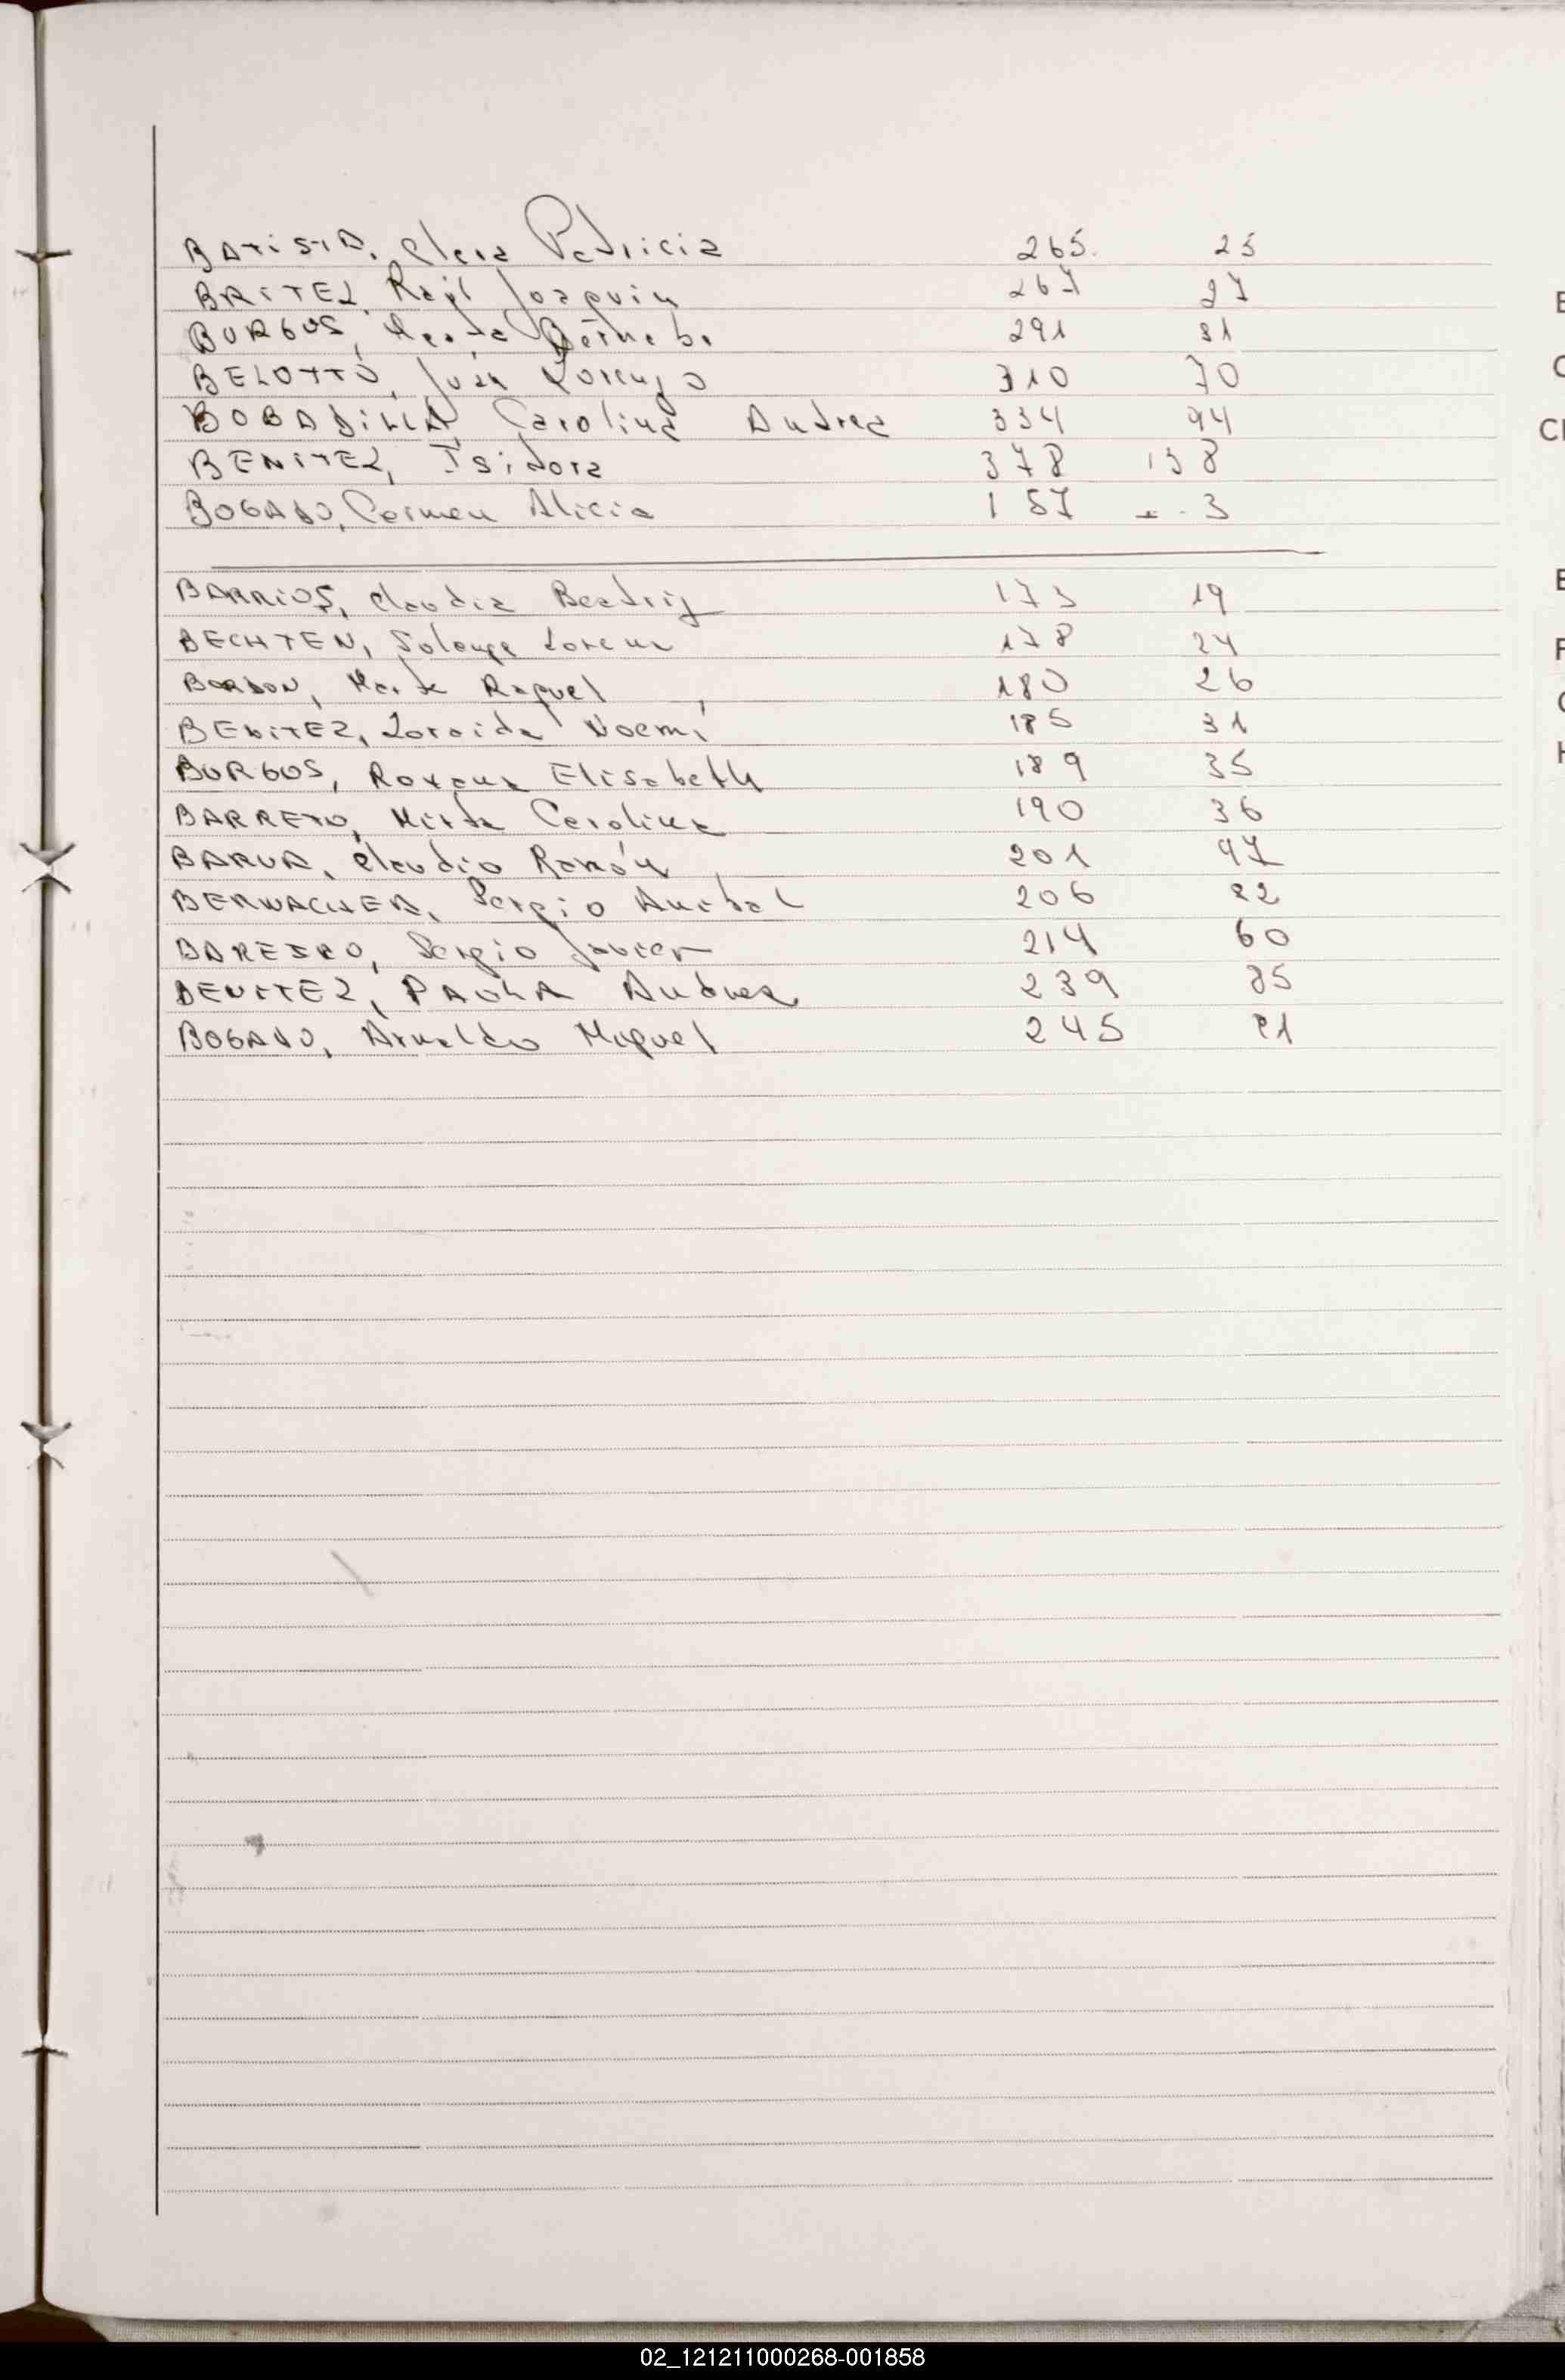 BATISTA, Clara Patricia 265. 25
BRITEZ, Raúl Joaquin 267 27
BURGOS, Marta Bernabe 291 51
BELOTTO, Juan Lorenzo 310 70
BOBADILLA, Carolina Andrea 334 94
BENITEZ, Isidora 378 138
BOGADO, Carmen Alicia 157 3
BARRIOS, Claudia Beatriz 173 19
BECHTEN, Solange Lorena 178 24
BORDON, Marta Raquel 180 26
BENITEZ, Zoraida Noemí 185 31
BURGOS, Roxana Elisabeth 189 35
BARRETO, Mirta Carolina 190 36
BARUA, Claudio Ramón 201 47
Sergio Anibal 206 52
BAREIRO, Sergio Javier 214 60
BENITEZ, PAOLA Andrea 239 85
BOGADO, Arnaldo Miguel 245 91
E
C
CH
E
F
G
H
02_121211000268-001858